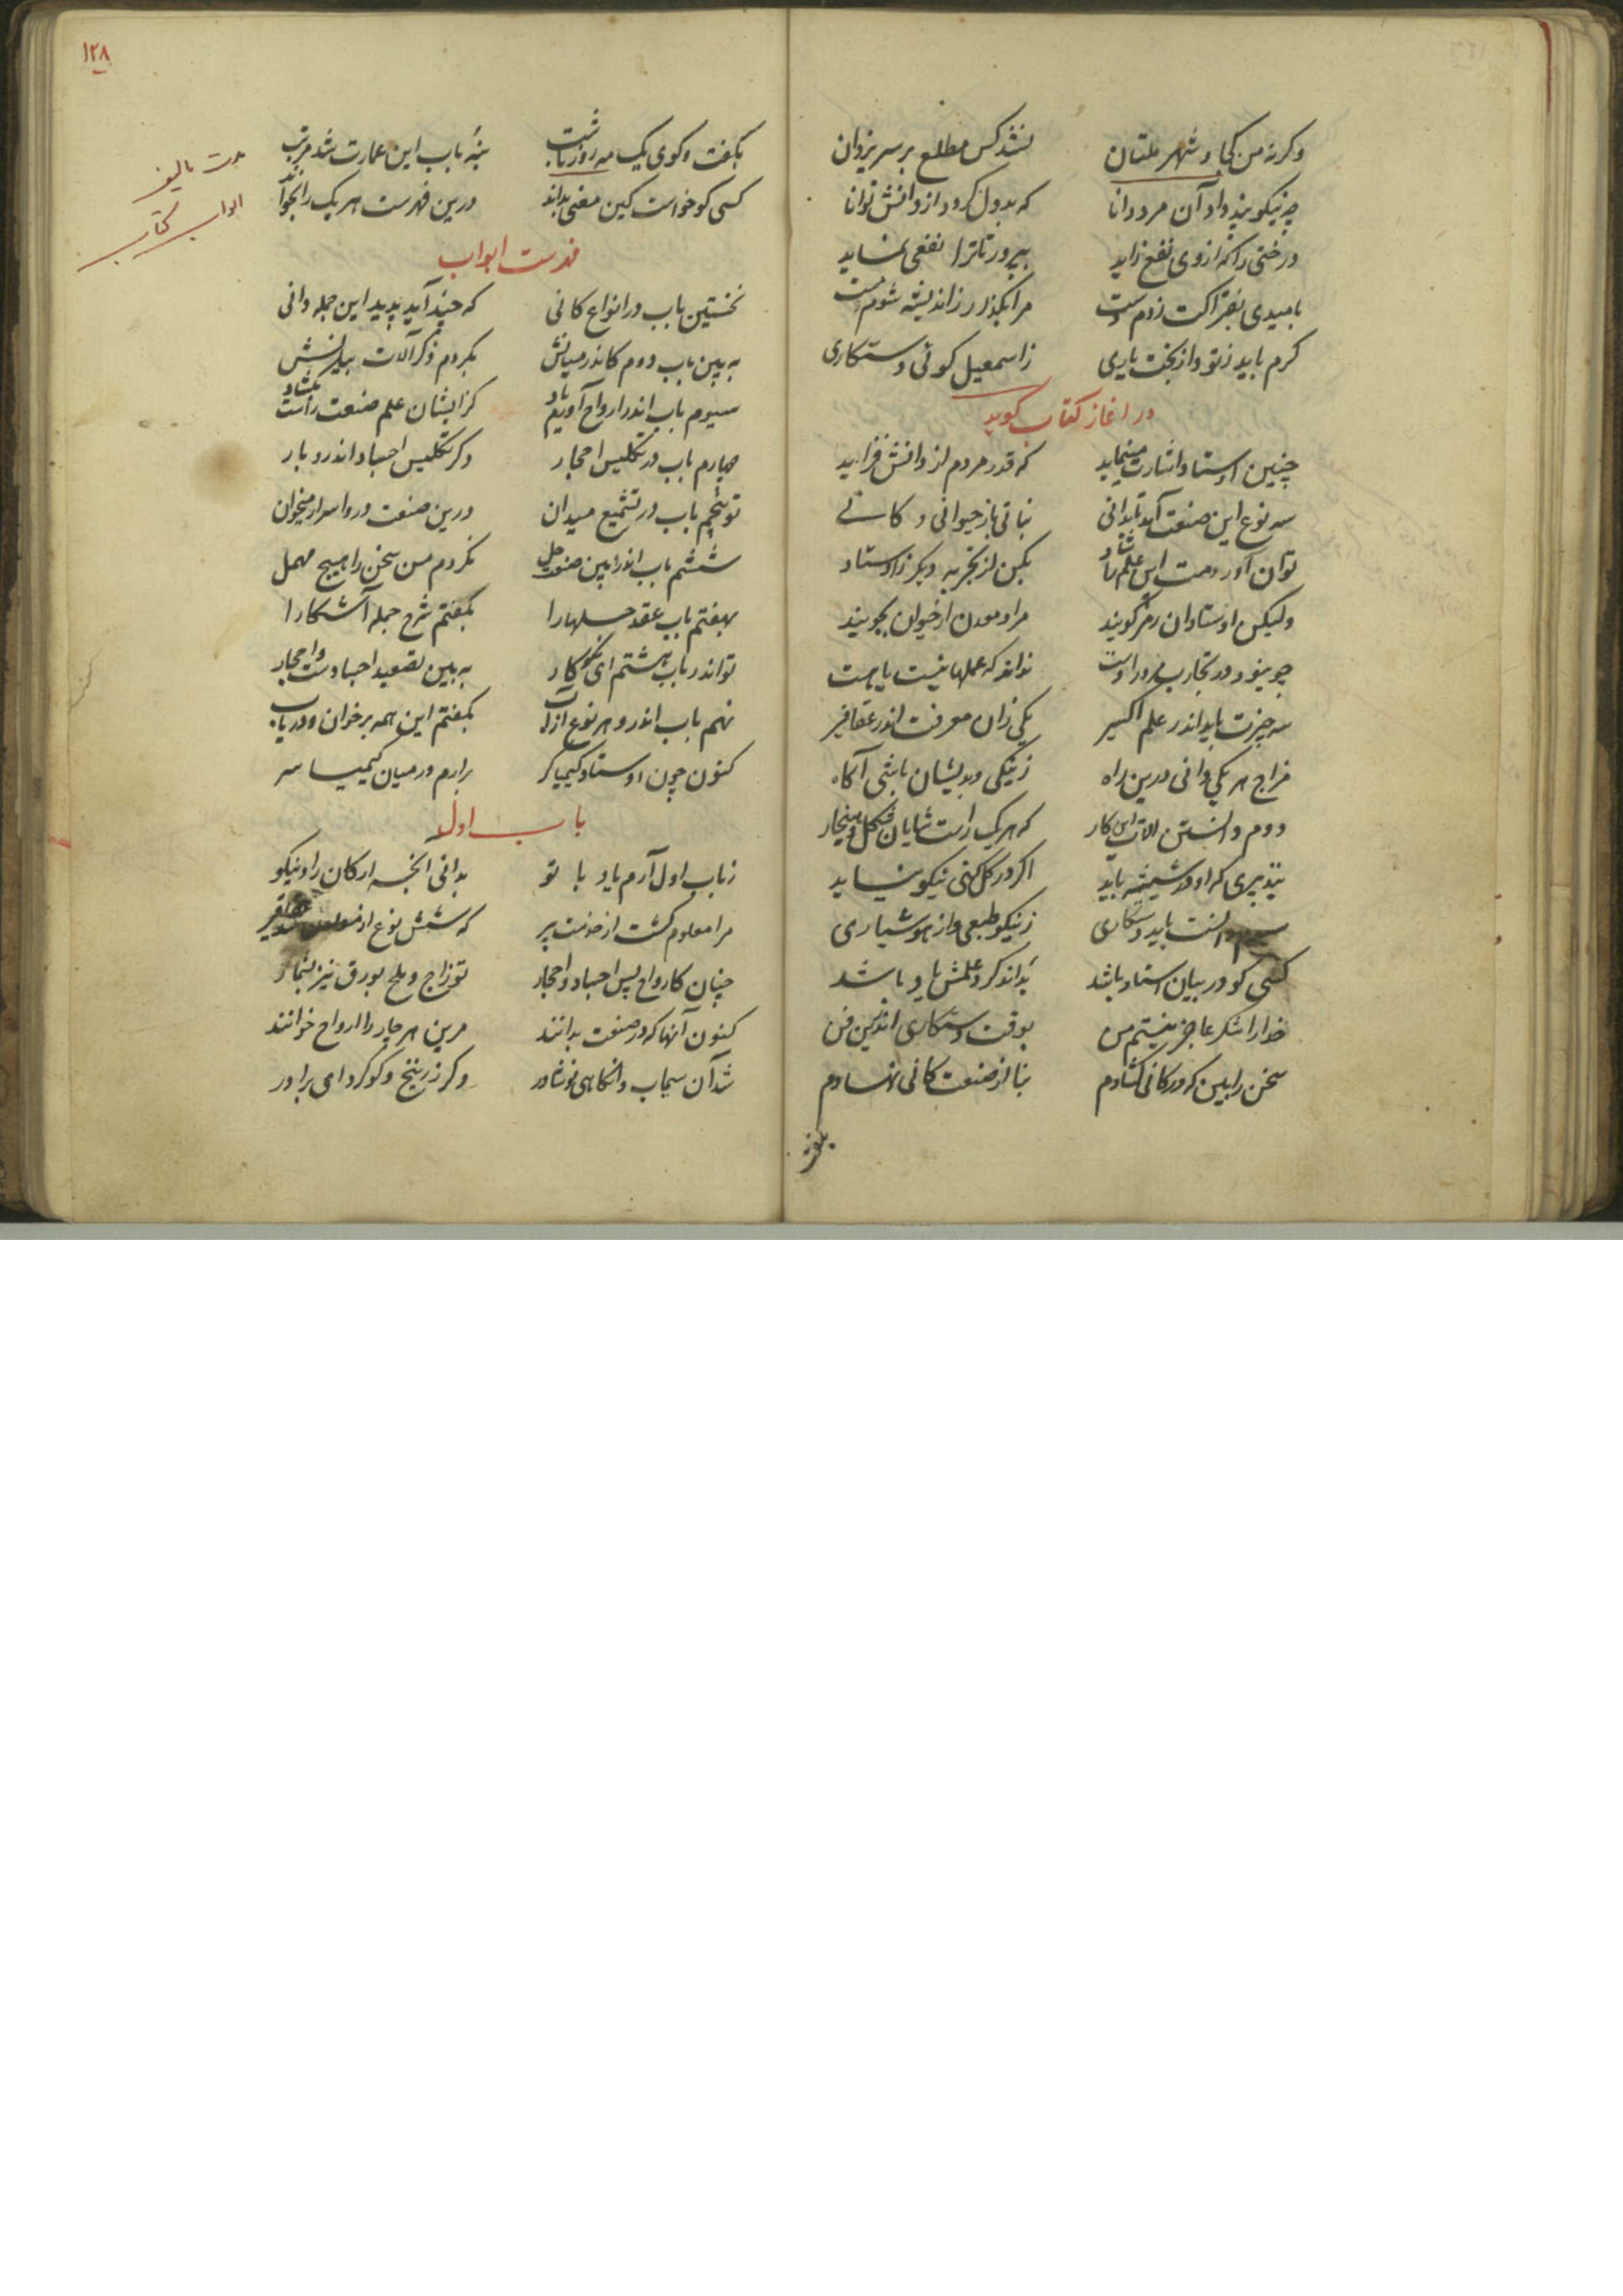 وکرنه من کجا و شهر ملتان نشد کس مطلع بر سر یزدان
چه نیکو پند داد آن مرد دانا که بد ول کرود از دانش توانا
درختی را که از وی نفع زاید بپرور تا ترا نفعی نماید
بامیدی بفتراکت زدم دست مرا مگذار ز اندیشه شوم پست
کرم باید ز تو وز بخت یاری ز اسمعیل کوئی و ستکاری
در اغاز کتاب کوید
چنین اوستاد اشارت مینماید که قدر مردم از دانش فزاید
سه نوع این صنعت آمد تا بدانی نباتی باز حیوانی و کانی
توان آوردمت این علم را یاد بکن از تجربه دیکر ز اوستاد
ولیکن اوستادان رمز کویند مراد معدن از حیوان بجویند
نداند که عملها نیست یا هست
سه چیزت باید اندر علم اکسیر یکی زان معرفت اندر عقاقیر
مزاج هر یکی دانی درین راه ز نیکی و بدیشان باشی آکاه
دوم دانستن آلات این کار که هر یک راست شایان شکل و هنجار
تدبیری که او در شیشه باید اکر در کل کنی نیکو نیاید
سیم دانست باید دستکاری ز نیکو طبعی و از هوشیاری
کسی کو در بیان استاد باشد بداند کرد علمش یاد باشد
خدا را شکر عاجز نیستم من بوقت دستکاری اندرین فن
سخن را بین که در کانی کشادم بنا از صنعت کانی نهادم
۱۲۸
مدت تالیف
ابواب کتاب
بکفت و کوی یک مه روز تا شب بنه باب این عمارت شد مرتب
کسی کو خواست کین معنی بداند درین فهرست هر یک را بخواند
فهرست ابواب
نخستین باب در انواع کانی که چند آید پدید این جمله دانی
به بین باب دوم کاندر میانش بکردم ذکر آلات بیانش
سیوم باب اندر ارواح آوریم یاد کز ایشان علم صنعت راست بکشاد
چهارم باب در تکلیس احجار دکر تکلیس اجساد اندرو بار
تو پنجم باب در تشمیع میدان درین صنعت درو اسرار میخوان
ششم باب اندر این صنعت حل نکردم من سخن را هیچ مهمل
بهفتم باب عقد حلها را بکفتم شرح جمله آشکارا
تو اندر باب هشتم ای نکوکار به بین تصعید اجسادست و احجار
نهم باب اندر و هر نوع از آب بکفتم این همه برخوان و دریاب
کنون چون اوستاد کیمیاکر برارم در میان کیمیا سر
باب اول
ز باب اول آرم یاد با تو بدانی آنچه ارکان را و نیکو
مرا معلوم کشت از خدمت پیر که شش نوع از عقاقیر
چنان کارواح پس اجساد و احجار تو زاج و ملح بورق نیز بشمار
کنون آنها که در صنعت بدانند مرین هر چار را ارواح خوانند
شد آن سیماب و انکاهی نوشادر دکر زرنیخ و کوکرد ای برادر